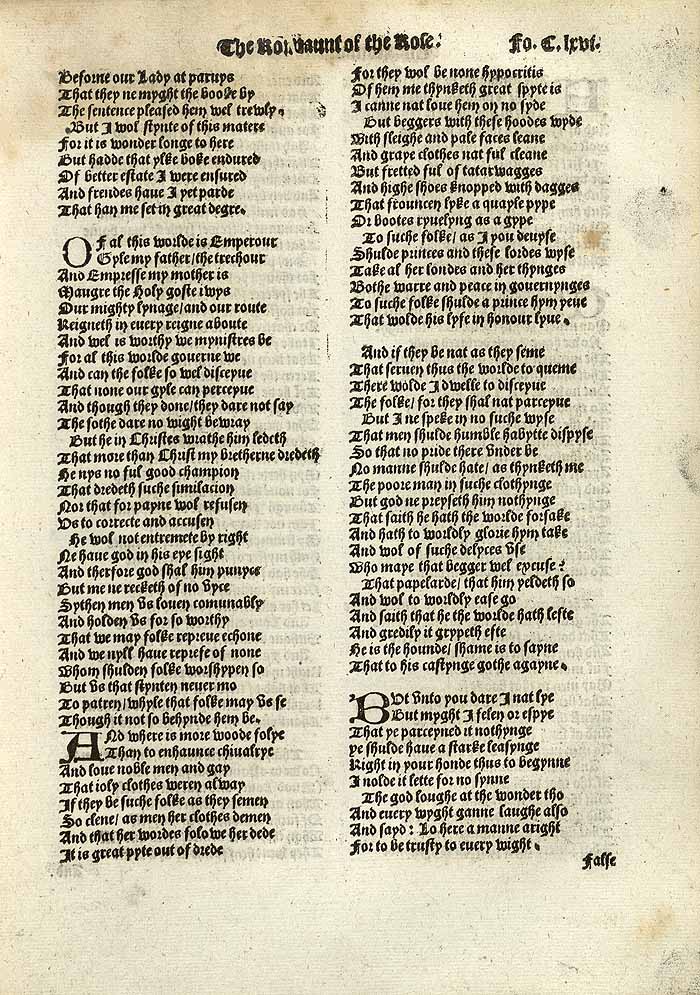 The Romaunt of the Rose. Fo. C. lxvi.
Beforne our Lady at paruys
That they ne myght the booke by
The sentence pleased hem wel trewly.
But I wol stynte of this matere
For it is wonder longe to here
But hadde that ylke boke endured
Of better estate I were ensured
And frendes haue I yet parde
That han me set in great degre.
OF al this worlde is Emperour
Gyle my father/the trechour
And Empresse my mother is
Maugre the Holy goste iwys
Our mighty lynage/and our route
Reigneth in euery reigne aboute
And wel is worthy we mynistres be
For al this worlde gouerne we
And can the folke so wel disceyue
That none our gyle can perceyue
And though they done/they dare not say
The sothe dare no wight bewray
But he in Christes wrathe him ledeth
That more than Christ my bretherne dredeth
He nys no ful good champion
That dredeth suche similacion
Nor that for payne wol refusen
Vs to correcte and accusen
He wol not entremete by right
Ne haue god in his eye sight
And therfore god shal him punyce
But me ne recketh of no vyce
Sythen men vs louen comunably
And holden vs for so worthy
That we may folke repreue echone
And we nyll haue reprefe of none
Whom shulden folke worshypen so
But vs that stynten neuer mo
To patren/whyle that folke may vs se
Though it not so behynde hem be.
AND where is more woode folye
Than to enhaunce chiualrye
And loue noble men and gay
That ioly clothes weren alway
If they be suche folke as they semen
So clene/ as men her clothes demen
And that her wordes folowe her dede
It is great pyte out of drede
For they wol be none hypocritis
Of hem me thynketh great spyte is
I canne nat loue hem on no syde
But beggers with these hoodes wyde
With sleighe and pale faces leane
And graye clothes nat ful cleane
But fretted ful of tatarwagges
And highe shoes knopped with dagges
That frouncen lyke a quayle pype
Or bootes ryuelyng as a gype
To suche folke/ as I you deuyse
Shulde princes and these lordes wyse
Take al her londes and her thynges
Bothe warre and peace in gouernynges
To suche folke shulde a prince hym yeue
That wolde his lyfe in honour lyue.
And if they be nat as they seme
That seruen thus the worlde to queme
There wolde I dwelle to disceyue
The folke/ for they shal nat parceyue
But I ne speke in no suche wyse
That men shulde humble habytte dispyse
So that no pride there vnder be
No manne shulde hate/ as thynketh me
The poore man in suche clothynge
But god ne preyseth him nothynge
That saith he hath the worlde forsake
And hath to worldly glorie hym take
And wol of suche delyces vse
Who maye that begger wel excuse?
That papelarde/ that him yeldeth so
And wol to worldly ease go
And saith that he the worlde hath lefte
And gredily it grypeth efte
He is the hounde/ shame is to sayne
That to his castynge gothe agayne.
BVt vnto you dare I nat lye
But myght I felen or espye
That ye parceyued it nothynge
ye shulde haue a starke leasynge
Right in your honde thus to begynne
I nolde it lette for no synne
The god loughe at the wonder tho
And euery wyght ganne laughe also
And sayd: Lo here a manne aright
For to be trusty to euery wight.
False